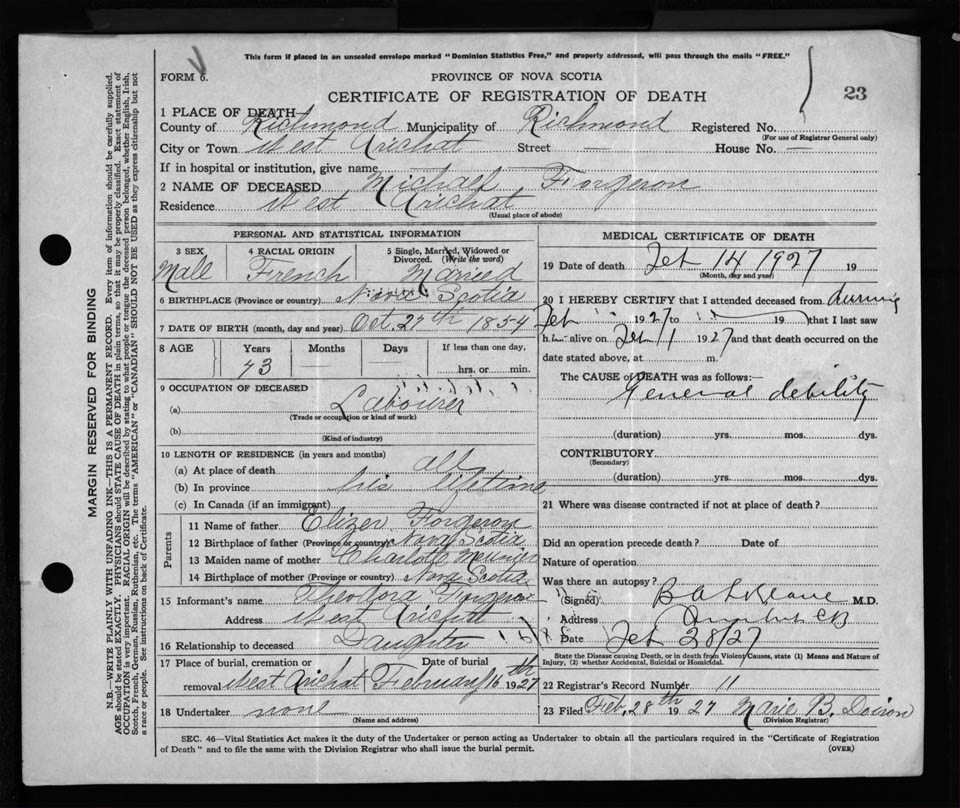 This form if placed in an unsealed envelope marked "Dominion Statistics Free," and properly addressed, will pass through the mails "FREE."
FORM 6.
PROVINCE OF NOVA SCOTIA
CERTIFICATE OF REGISTRATION OF DEATH
23
1 PLACE OF DEATH
County of Richmond Municipality of Richmond Registered No.
(For use of Registrar General only)
City or Town West Arichat Street — House No. —
If in hospital or institution, give name
2 NAME OF DECEASED Michael Forgeron
Residence West Arichat
(Usual place of abode)
PERSONAL AND STATISTICAL INFORMATION
3 SEX Male
4 RACIAL ORIGIN French
5 Single, Married, Widowed or Divorced. (Write the word) Married
6 BIRTHPLACE (Province or country) Nova Scotia
7 DATE OF BIRTH (month, day and year) Oct. 27th 1854
8 AGE Years Months Days If less than one day,
73 — — hrs. or min.
9 OCCUPATION OF DECEASED
(a) Labourer
(Trade or occupation or kind of work)
(b)
(Kind of industry)
10 LENGTH OF RESIDENCE (in years and months)
(a) At place of death all
(b) In province his lifetime
(c) In Canada (if an immigrant)
Parents
11 Name of father Elizer Forgeron
12 Birthplace of father (Province or country) Nova Scotia
13 Maiden name of mother Charlotte Meunier
14 Birthplace of mother (Province or country) Nova Scotia
15 Informant's name Theodora Forgeron
Address West Arichat
16 Relationship to deceased Daughter
17 Place of burial, cremation or Date of burial
removal West Arichat February 16th 1927
18 Undertaker none
(Name and address)
MEDICAL CERTIFICATE OF DEATH
19 Date of death Feb 14 1927 19
(Month, day and year)
20 I HEREBY CERTIFY that I attended deceased from during
Feb 1927 to 19 that I last saw
h alive on Feb 1 1927 and that death occurred on the
date stated above, at m.
The CAUSE of DEATH was as follows:—
General debility
(duration) yrs. mos. dys.
CONTRIBUTORY
(Secondary)
(duration) yrs. mos. dys.
21 Where was disease contracted if not at place of death?
Did an operation precede death? Date of
Nature of operation
Was there an autopsy?
(Signed) B A M.D.
Address
Date Feb 28/27
State the Disease causing Death, or in death from Violent Causes, state (1) Means and Nature of
Injury, (2) whether Accidental, Suicidal or Homicidal.
22 Registrar's Record Number 11
23 Filed Feb. 28th 1927 Marie B. Doiron
(Division Registrar)
SEC. 46—Vital Statistics Act makes it the duty of the Undertaker or person acting as Undertaker to obtain all the particulars required in the "Certificate of Registration
of Death" and to file the same with the Division Registrar who shall issue the burial permit.
(OVER)
MARGIN RESERVED FOR BINDING
N.B.—WRITE PLAINLY WITH UNFADING INK—THIS IS A PERMANENT RECORD. Every item of information should be carefully supplied.
AGE should be stated EXACTLY. PHYSICIANS should STATE CAUSE OF DEATH in plain terms, so that it may be properly classified. Exact statement of
OCCUPATION is very important. RACIAL ORIGIN will be described by stating to what people or tongue the deceased person belonged, whether English, Irish,
Scotch, French, German, Russian, Ruthenian, etc. The terms "AMERICAN" or "CANADIAN" SHOULD NOT BE USED as they express citizenship but not
a race or people. See instructions on back of Certificate.